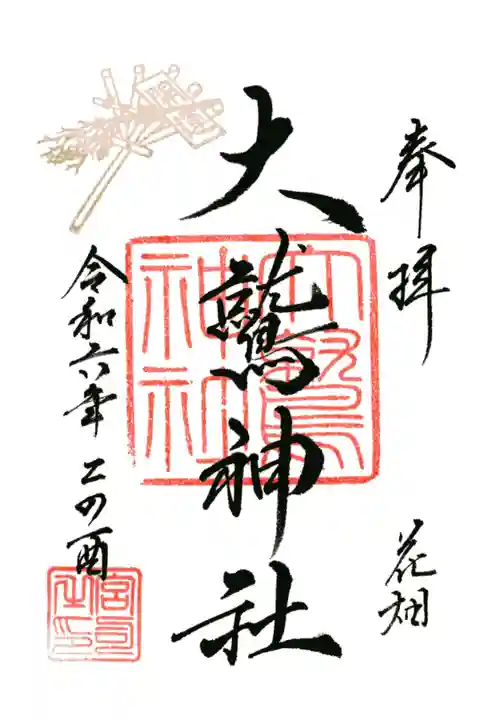 奉拝
花畑
大鷲神社
令和六年二の酉
大鷲神社
宮司之印